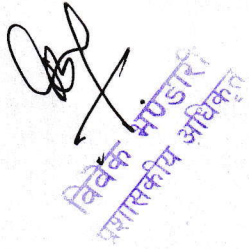 विवेक भण्डारी
प्रशासकीय अधिकृत